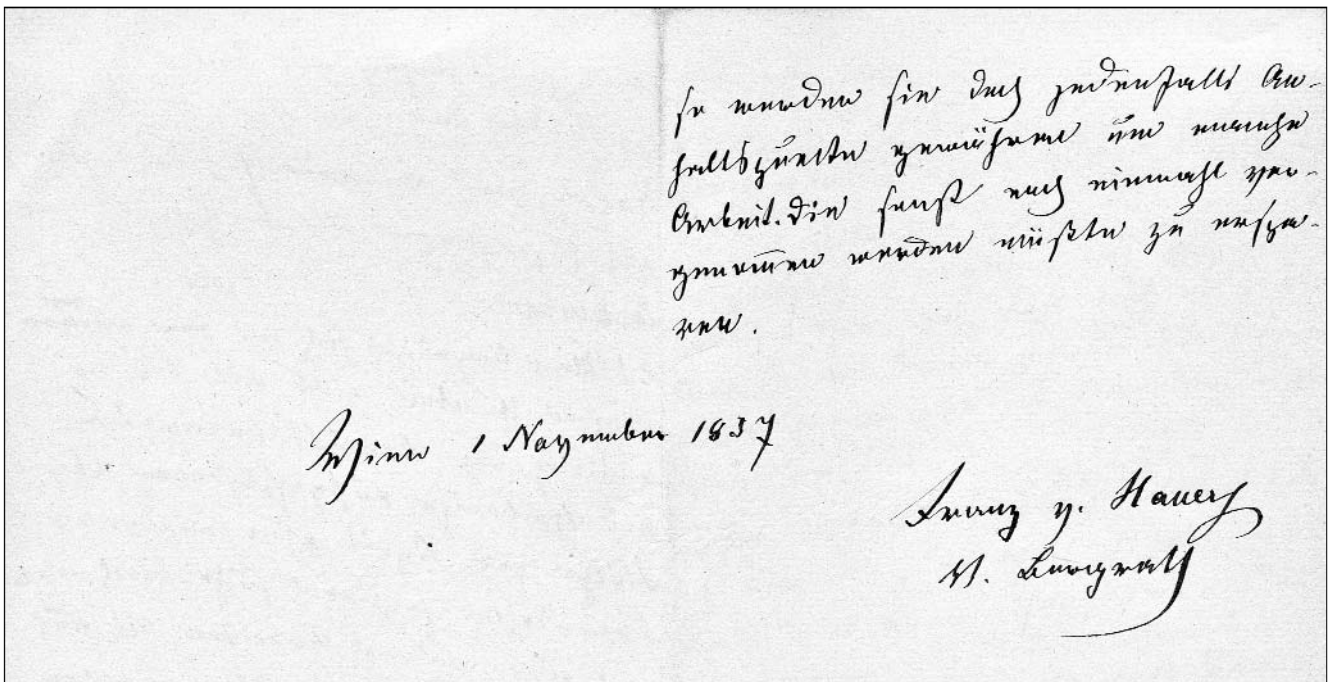 so werden sie doch jedenfalls An-
haltspunkte gewähren um manche
Arbeit. die sonst noch einmahl vor-
genom̄en werden müßte zu erspa-
ren.
Wien 1 November 1857
Franz v. Hauer
Bergrath